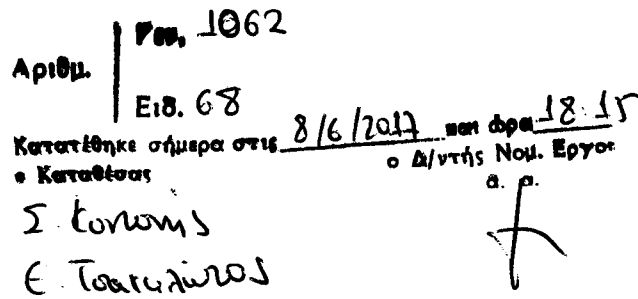 Αριθμ.
Γεν. 1062
Ειδ. 68
Κατατέθηκε σήμερα στις 8/6/2017 και ώρα 18:15
ο Καταθέσας
ο Δ/ντής Νομ. Εργασ
α. α.
Σ. Κοντονής
Ε. Τσακαλώτος